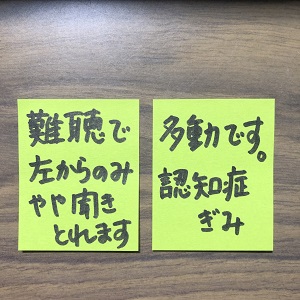 難聴で
左からのみ
やや聞き
とれます
多動です。
認知症
ぎみ